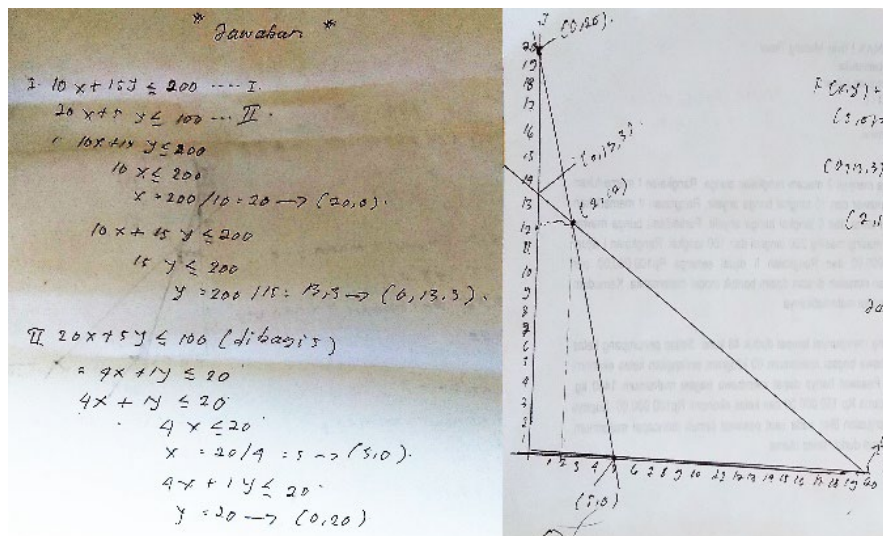 * Jawaban *
I. 10x + 15y ≤ 200 .... I.
20x + 5 y ≤ 100 ... II.
10x + 15 y ≤ 200
10 x ≤ 200
x = 200/10 = 20 → (20,0).
10x + 15 y ≤ 200
15 y ≤ 200
y = 200/15 = 13,3 → (0,13,3).
II 20x + 5y ≤ 100 (dibagi 5)
= 4x + 1y ≤ 20
4x + 1y ≤ 20
4 x ≤ 20
x = 20/4 = 5 → (5,0).
4x + 1y ≤ 20
y = 20 → (0,20)
(0,20).
20
19
18
17
16
15
14
13
12
11
10
9
8
7
6
5
4
3
2
1
(0,13,3).
(2,12)
1 2 3 4 5 6 7 8 9 10 11 12 13 14 15 16 17 18 19 20
(5,0)
F(x,y) =
(5,0)=
(0,13,3)
(2,1